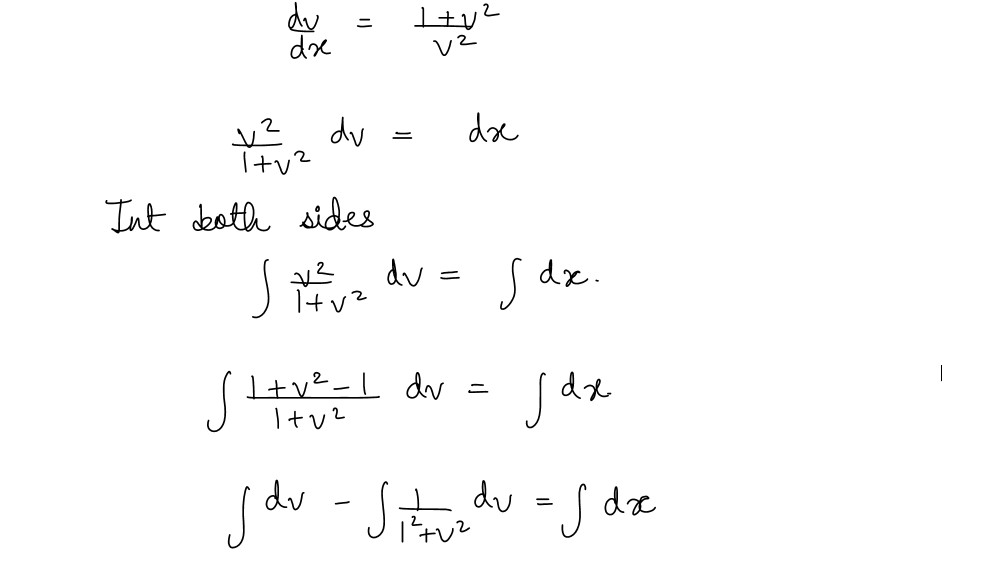 dv/dx = (1+v²)/v²
v²/(1+v²) dv = dx
Int both sides
∫ v²/(1+v²) dv = ∫ dx.
∫ (1+v²-1)/(1+v²) dv = ∫ dx
∫ dv - ∫ 1/(1²+v²) dv = ∫ dx